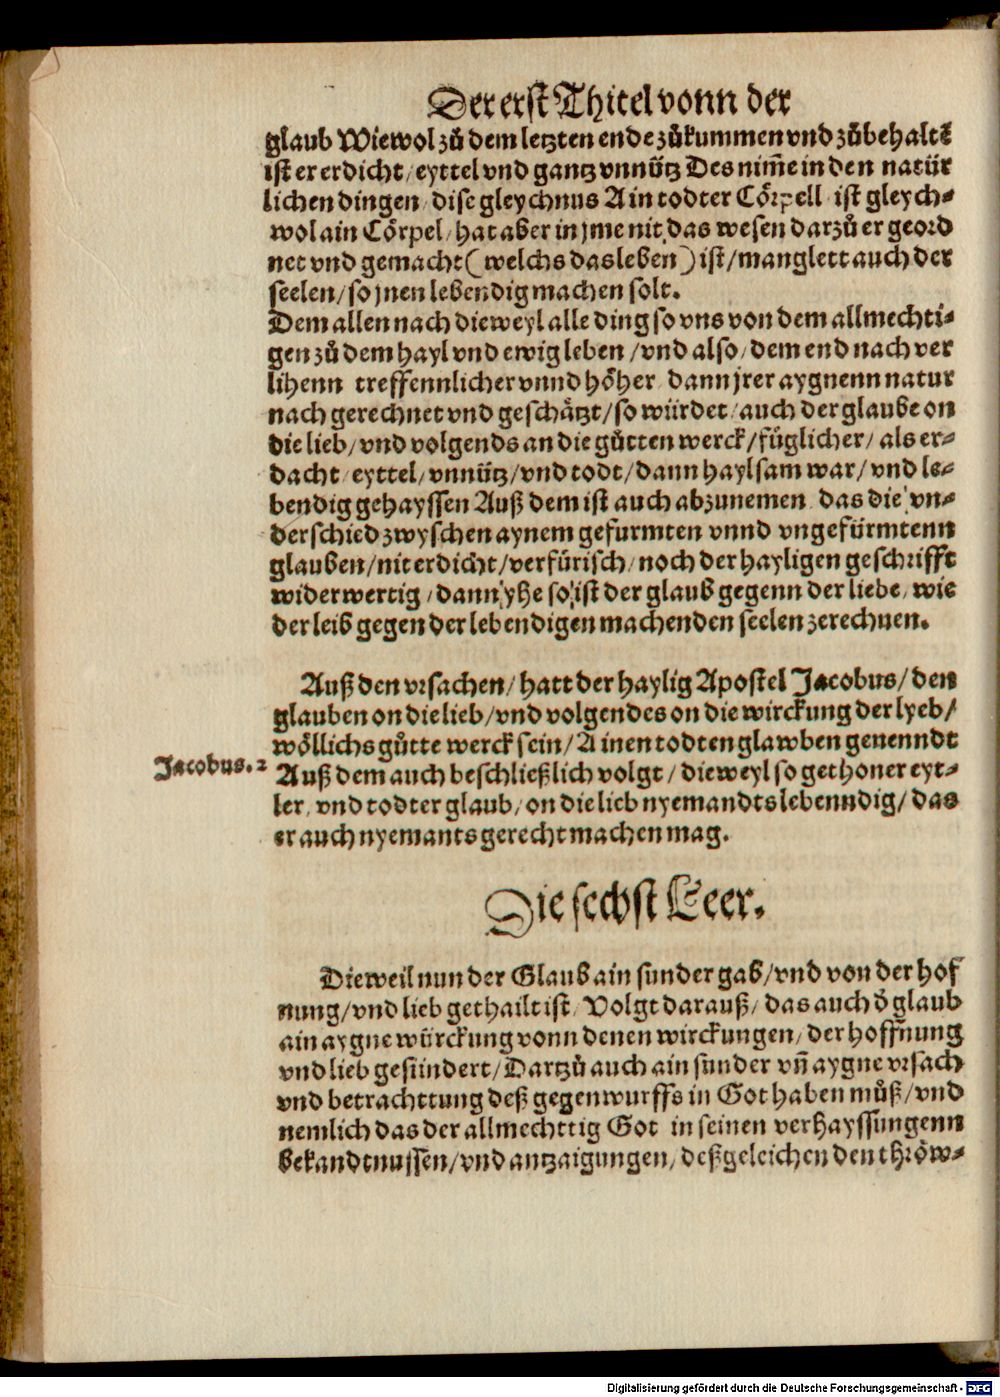 Der erst Thitel vonn der
glaub Wiewol zů dem letzten ende zůkummen vnd zůbehaltē
ist er erdicht/ eyttel vnd gantz vnnütz Des nim̃e in den natür
lichen dingen/ dise gleychnus Ain todter Cörpell/ ist gleych⸗
wol ain Cörpel/ hat aber in jme nit das wesen darzů er geord
net vnd gemacht (welchs das leben) ist/ manglett auch der
seelen/ so jnen lebendig machen solt.
Dem allen nach dieweyl alle ding so vns von dem allmechti⸗
gen zů dem hayl vnd ewig leben/ vnd also/ dem end nach ver
lihenn treffennlicher vnnd höher/ dann jrer aygnenn natur
nach gerechnet vnd geschätzt/ so würdet/ auch der glaube on
die lieb/ vnd volgends an die gůtten werck/ füglicher/ als er⸗
dacht/ eyttel/ vnnütz/ vnd todt/ dann haylsam war/ vnd le⸗
bendig gehayssen Auß dem ist auch abzunemen das die vn⸗
derschied zwyschen aynem gefurmten vnnd vngefürmtenn
glauben/ nit erdicht/ verfürisch/ noch der hayligen geschrifft
widerwertig/ dann yhe so ist der glaub gegenn der liebe/ wie
der leib gegen der lebendigen machenden seelen zerechnen.
Auß den vrsachen/ hatt der haylig Apostel Jacobus/ den
glauben on die lieb/ vnd volgendes on die wirckung der lyeb/
wöllichs gůtte werck sein/ Ainen todten glawben genenndt
Jacobus. 2
Auß dem auch beschließlich volgt/ dieweyl so gethoner eyt⸗
ler/ vnd todter glaub/ on die lieb nyemandts lebenndig/ das
er auch nyemants gerecht machen mag.
Die sechst Leer.
Dieweil nun der Glaub ain sunder gab/ vnd von der hof
nung/ vnd lieb gethailt ist/ Volgt darauß/ das auch d̕ glaub
ain aygne würckung vonn denen wirckungen/ der hoffn̄ung
vnd lieb gesündert/ Dartzů auch ain sunder vn̄ aygne vrsach
vnd betrachttung deß gegenwurffs in Got haben můß/ vnd
nemlich das der allmechttig Got in seinen verhayssungenn
bekandtnussen/ vnd antzaigungen/ deßgeleichen den thröw⸗
Digitalisierung gefördert durch die Deutsche Forschungsgemeinschaft - DFG